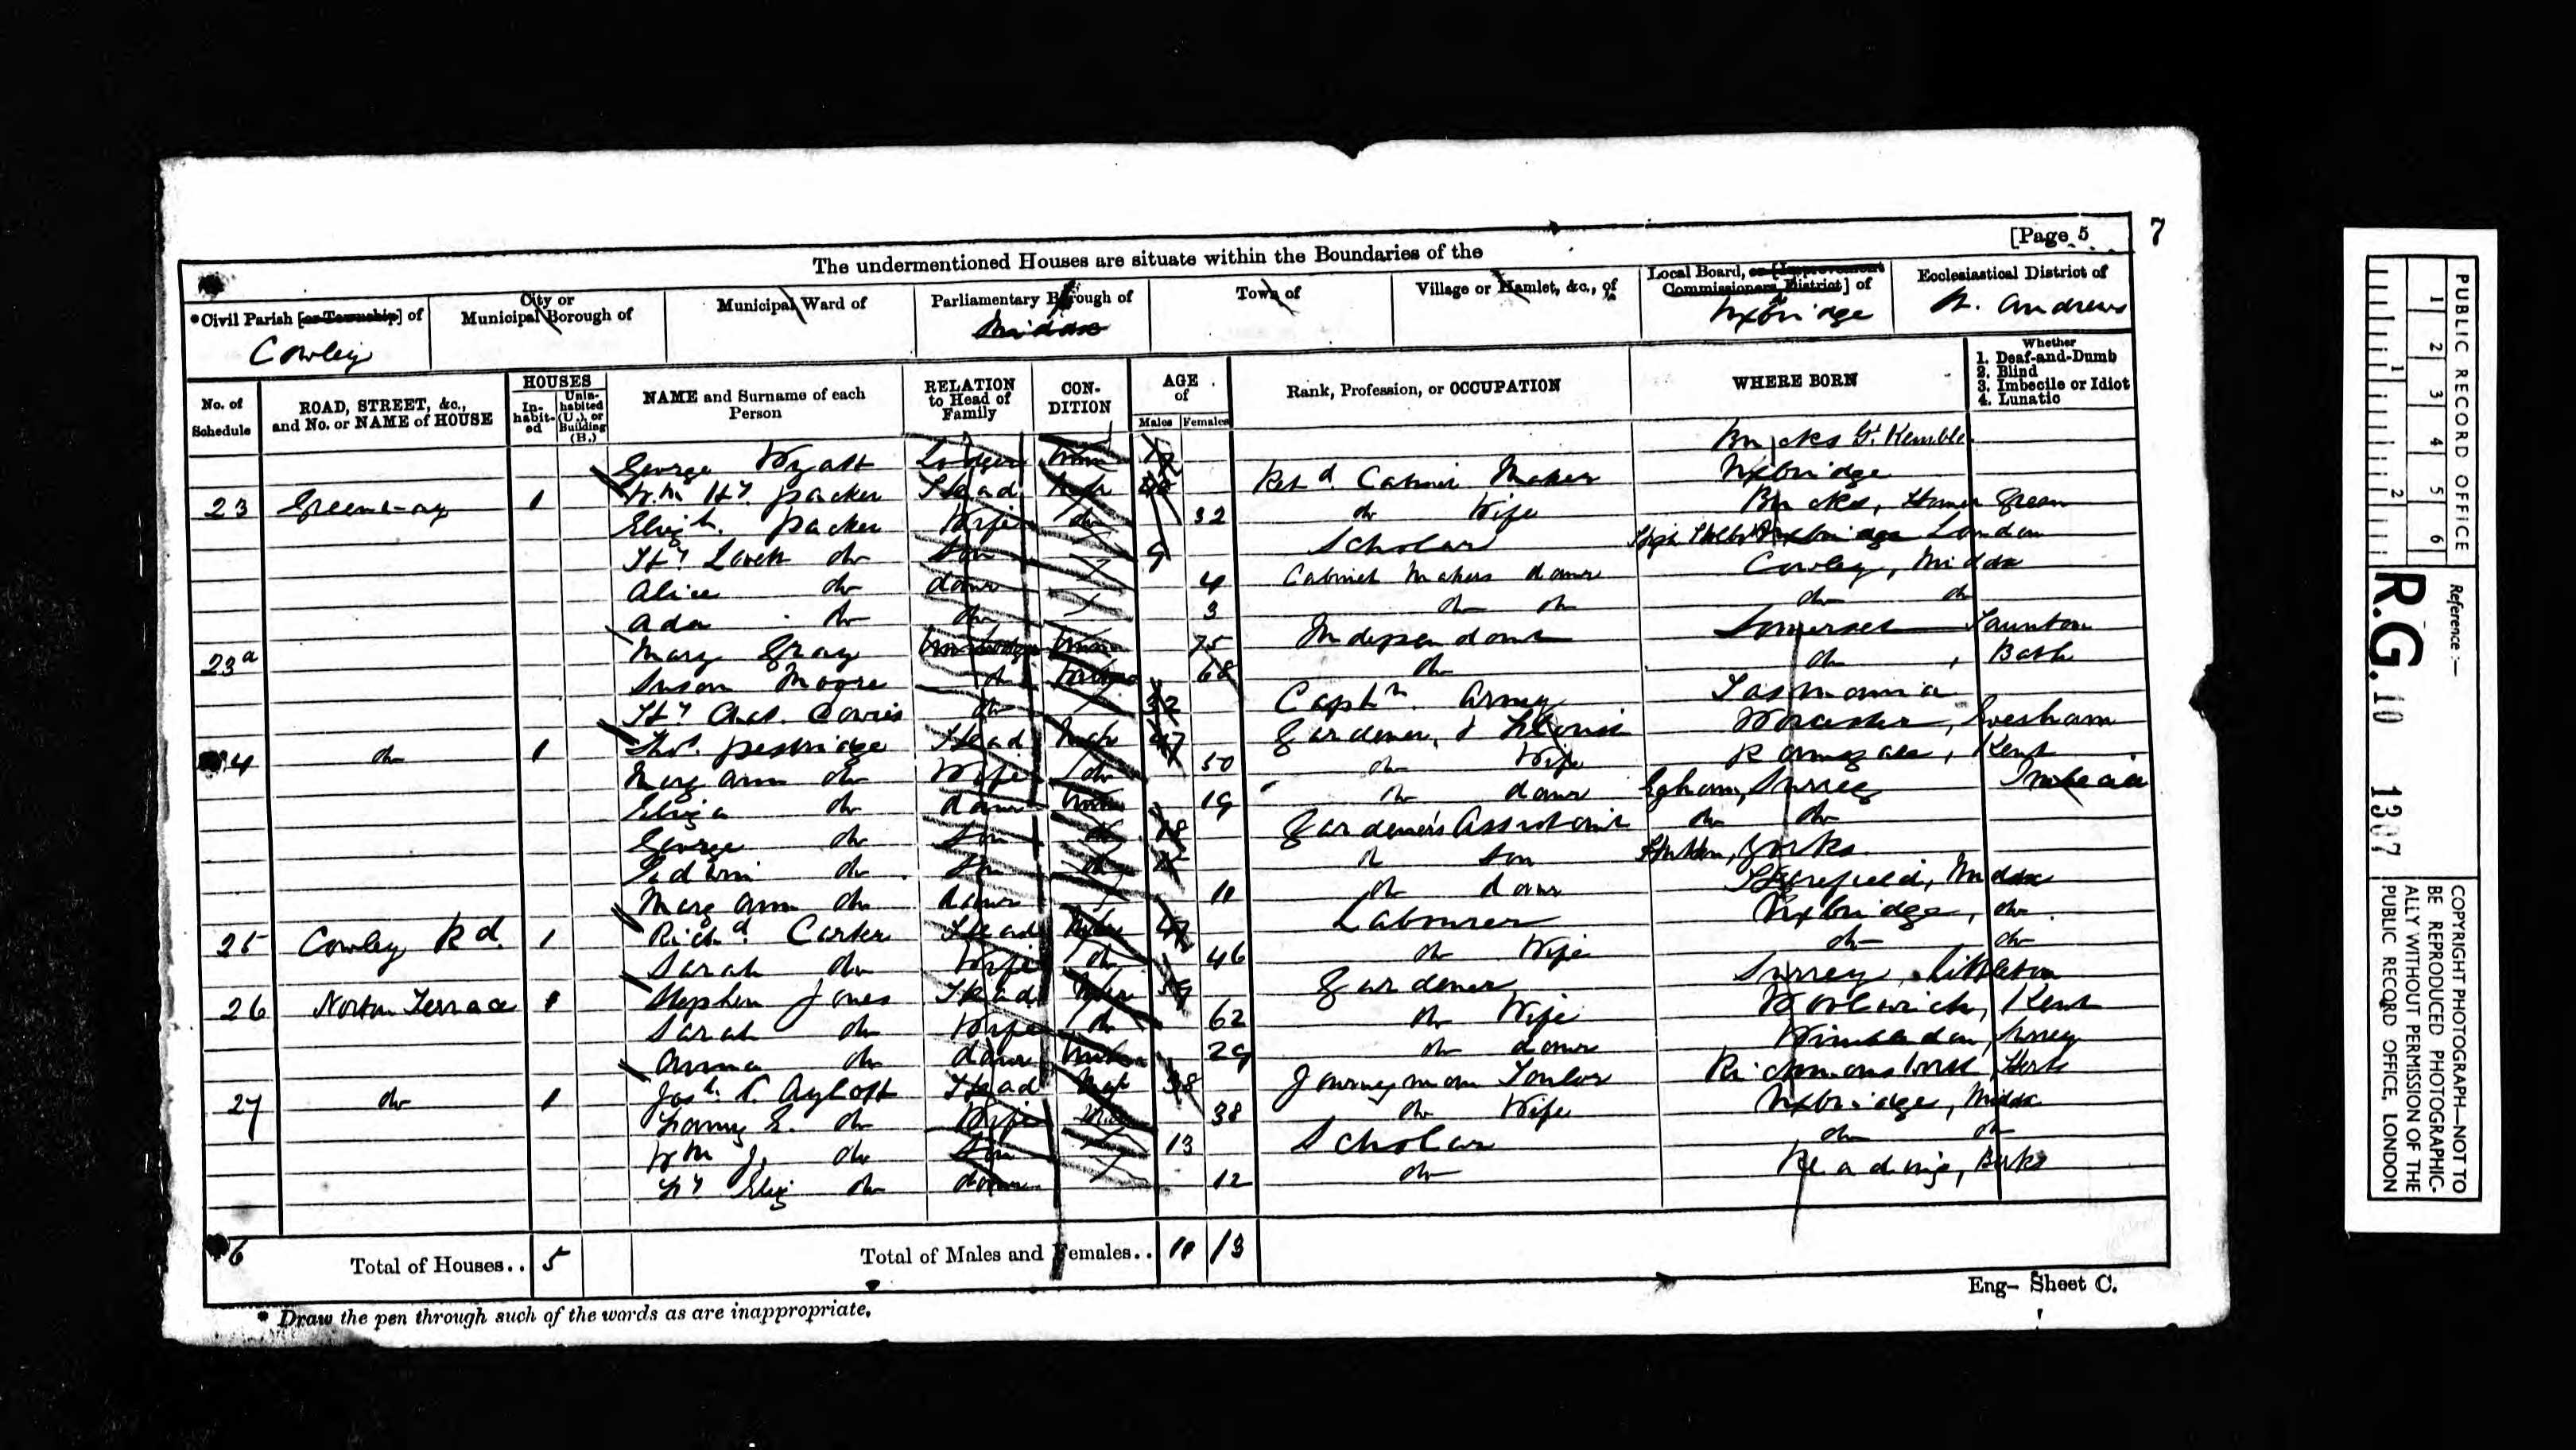 [Page 5
7
The undermentioned Houses are situate within the Boundaries of the
*Civil Parish [or Township] of
City or Municipal Borough of
Municipal Ward of
Parliamentary Borough of
Town of
Village or Hamlet, &c., of
Local Board, or [Improvement Commissioners District] of
Ecclesiastical District of
Cowley
Middx
Uxbridge
St. Andrews
No. of Schedule
ROAD, STREET, &c., and No. or NAME of HOUSE
HOUSES
In-habit-ed
Unin-habited (U.), or Building (B.)
NAME and Surname of each Person
RELATION to Head of Family
CON-DITION
AGE of
Males
Females
Rank, Profession, or OCCUPATION
WHERE BORN
Whether
1. Deaf-and-Dumb
2. Blind
3. Imbecile or Idiot
4. Lunatic
George Wyatt Lodger Unm Bucks Gt. Kemble
23 Greenway 1 Wm Hy Packer Head Mar Cabinet Maker Uxbridge
Elizth. Packer Wife do 32 do Wife Bucks, Homer Green
Hy do Son 9 Scholar London
Alice do daur 4 Cabinet Makers daur Cowley, Middx
Ada do do 3 do do do do
23a Mary Gray Unm 75 Independant Somerset Taunton
Susan Moore do 68 do do, Bath
Hy Chas. do 32 Captn. Army Tasmania
24 do 1 Thos. Pestridge Head Mar 47 Gardener & Florist Worcester, Evesham
Mary Ann do Wife do 50 do Wife Ramsgate, Kent
Eliza do daur Unm 19 do daur Egham, Surrey Imbecile
George do Son do 18 Gardener's Assistant do do
Edwin do Son do do Son Yorks
Mary Ann do daur 11 do daur Harefield, Middx
25 Cowley Rd. 1 Richd. Carter Head Mar 47 Labourer Uxbridge, do
Sarah do Wife do 46 do Wife do do
26 Norton Terrace 1 Stephen Jones Head Mar 59 Gardener Surrey, Littleton
Sarah do Wife do 62 do Wife Woolwich, Kent
Anna do daur Unm 29 do daur Wimbledon, Surrey
27 do 1 Head Mar 38 Journeyman Tailor Herts
Fanny E. do Wife do 38 do Wife Uxbridge, Middx
Wm J. do Son 13 Scholar do do
Eliz do daur 12 do Reading, Berks
6 Total of Houses.. 5 Total of Males and Females.. 10 13
Eng- Sheet C.
* Draw the pen through such of the words as are inappropriate.
PUBLIC RECORD OFFICE
1 2 3 4 5 6
1 2
Reference :-
R.G. 10 1307
COPYRIGHT PHOTOGRAPH-NOT TO
BE REPRODUCED PHOTOGRAPHIC-
ALLY WITHOUT PERMISSION OF THE
PUBLIC RECORD OFFICE, LONDON